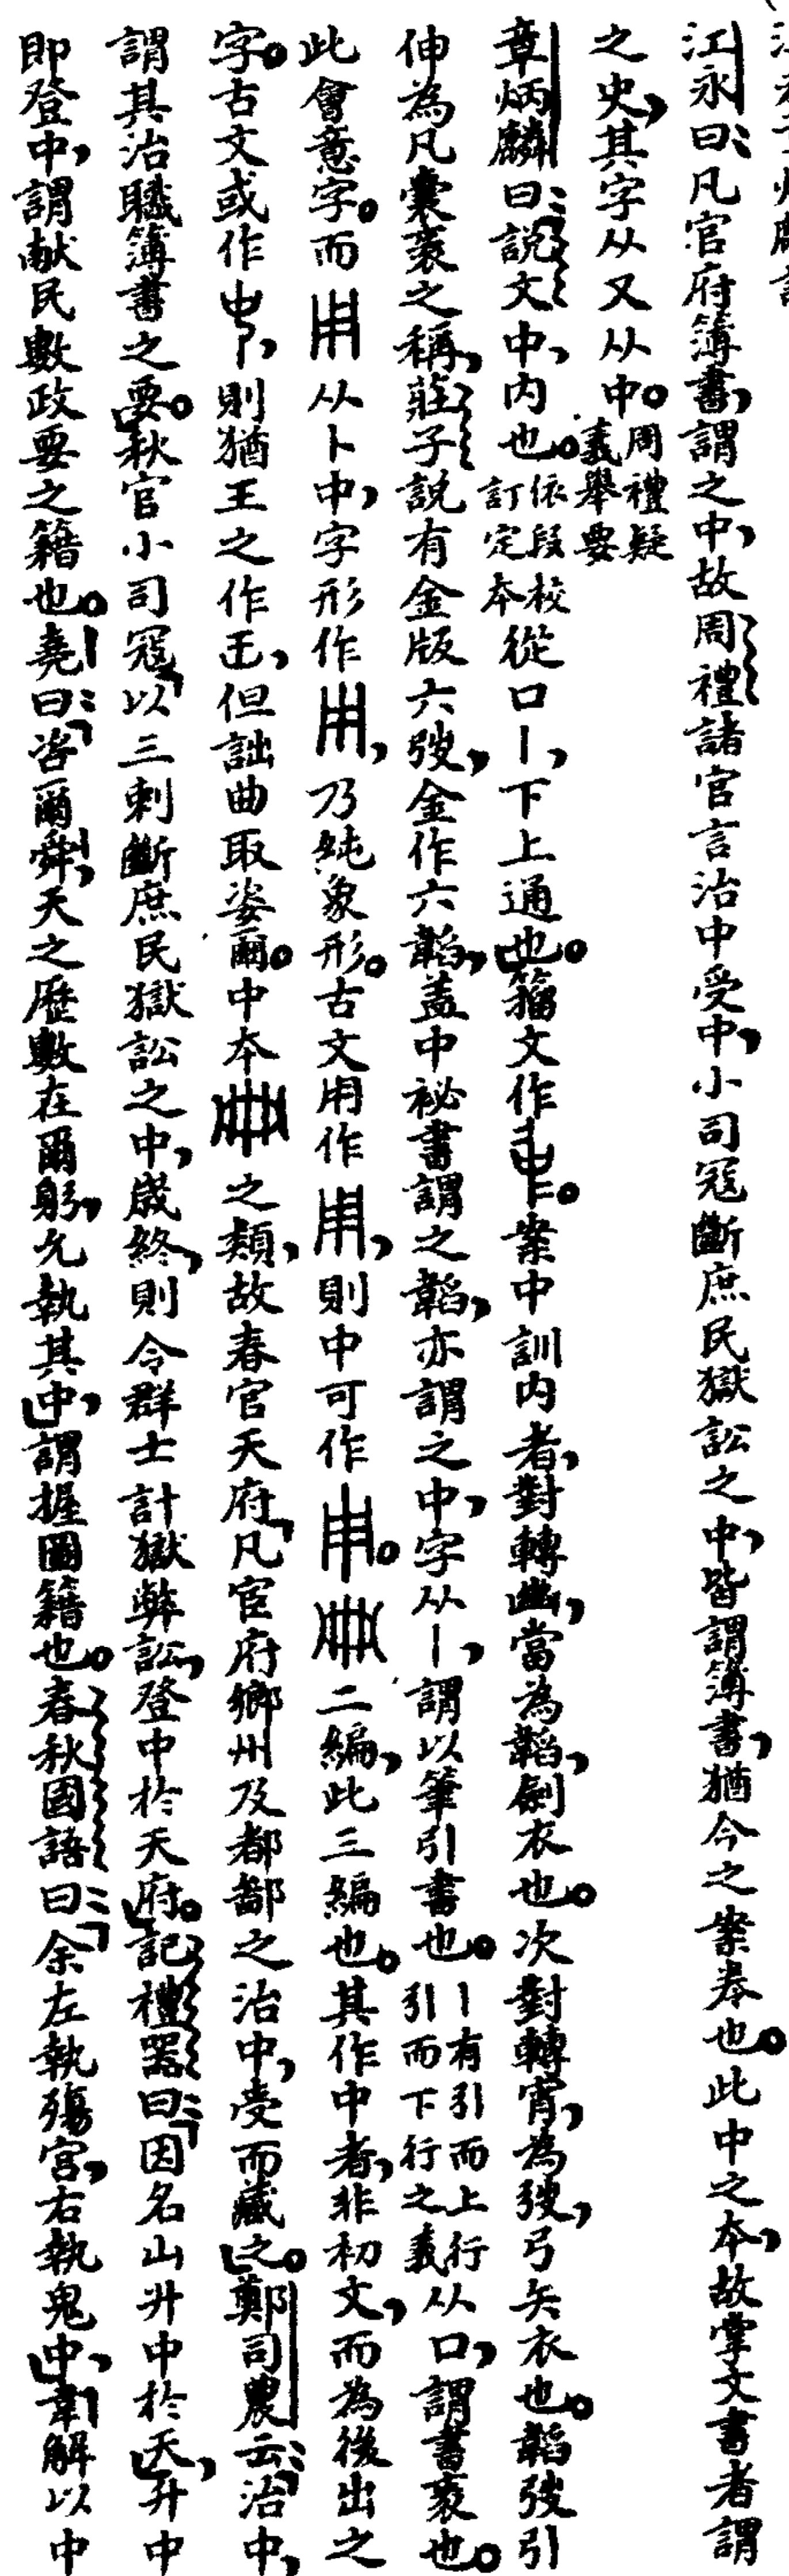 江永曰：凡官府簿書，謂之中，故周禮諸官言治中受中，小司寇斷庶民獄訟之中，皆謂簿書，猶今之案卷也。此中之本，故掌文書者謂
之史，其字从又从中。周禮疑義舉要
章炳麟曰：「說文中，内也。依段校訂定本從口丨，下上通也」。籀文作。案中訓内者，對轉幽，當為韜，劍衣也。次對轉宵，為弢，弓矢衣也。韜弢引
伸為凡囊袠之稱，莊子說有金版六弢，金作六韜，蓋中祕書謂之韜，亦謂之中，字从丨，謂以筆引書也。丨有引而上行引而下行之義从口，謂書袠也。
此會意字。而 从卜中，字形作 ，乃純象形。古文用作 ，則中可作 。 二編，此三編也。其作中者，非初文，而為後出之
字。古文或作 ，則猶王之作玉，但詘曲取姿爾。中本 之類，故春官天府，「凡官府鄉州及都鄙之治中，受而藏之」。鄭司農云：「治中，
謂其治職簿書之要」。秋官小司寇，「以三刺斷庶民獄訟之中，歲終，則令群士計獄弊訟，登中於天府」。記禮器曰：「因名山升中於天」，升中
即登中，謂献民數政要之籍也。堯曰：「咨爾舜，天之歷數在爾躬，允執其中」，謂握圖籍也。春秋國語曰：「余左執殤宮，右執鬼中」，韋解以中